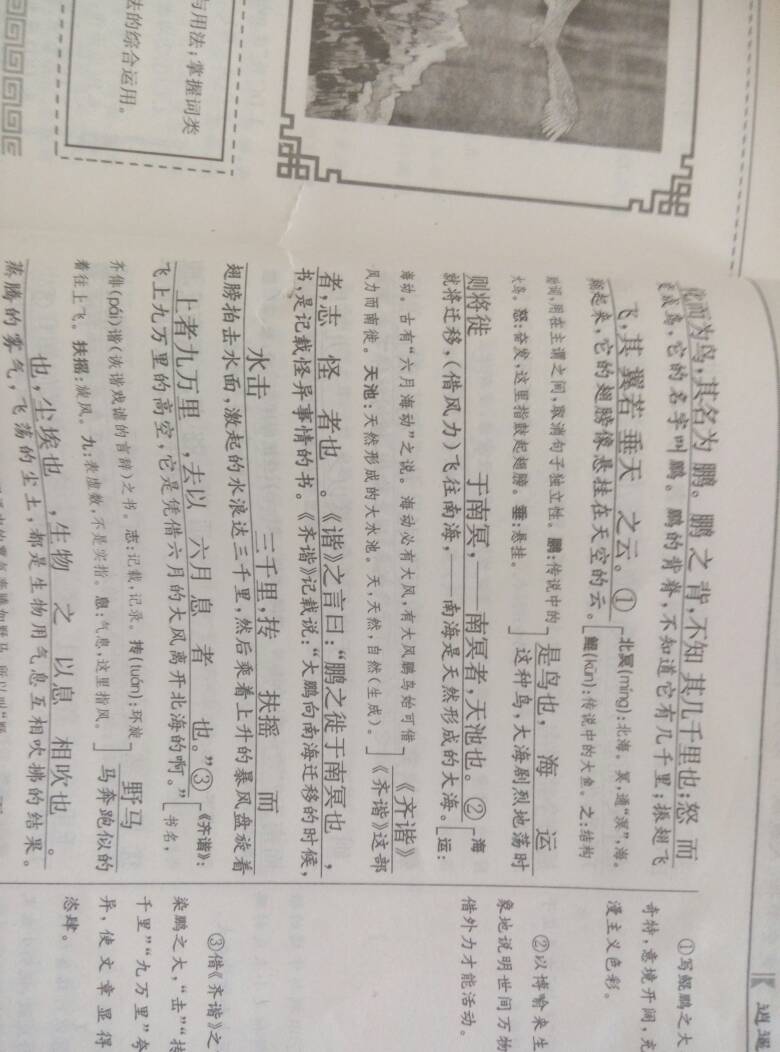 与用法；掌握词类
法的综合运用。
逍遥
化而为鸟，其名为鹏。鹏之背，不知其几千里也；怒而
变成鸟，它的名字叫鹏。鹏的背脊，不知道它有几千里；振翅飞
飞，其翼若垂天之云。①[北冥(míng)：北海。冥，通“溟”，海。
翻起来，它的翅膀像悬挂在天空的云。[鲲(kūn)：传说中的大鱼。之：结构
助词，用在主谓之间，取消句子独立性。鹏：传说中的
大鸟。怒：奋发，这里指鼓起翅膀。垂：悬挂。]
是鸟也，海运
这种鸟，大海剧烈地荡时
则将徙于南冥，——南冥者，天池也。②[海
就将迁移，(借风力)飞往南海，——南海是天然形成的大海。[运：
海动。古有“六月海动”之说。海动必有大风，有大风鹏鸟始可借
风力而南徙。天池：天然形成的大水池。天，天然，自然(生成)。]
《齐谐》
《齐谐》这部
者，志怪者也。《谐》之言曰：“鹏之徙于南冥也，
书，是记载怪异事情的书。《齐谐》记载说：“大鹏向南海迁移的时候，
水击三千里，抟扶摇而
翅膀拍击水面，激起的水浪达三千里，然后乘着上升的暴风盘旋着
上者九万里，去以六月息者也。”③[《齐谐》：
飞上九万里的高空，它是凭借六月的大风离开北海的啊。”[书名，
齐俳(pái)谐(诙谐戏谑的言辞)之书。志：记载，记录。抟(tuán)：环旋
着往上飞。扶摇：旋风。九：表虚数，不是实指。息：气息，这里指风。]
野马
马奔跑似的
也，尘埃也，生物之以息相吹也。
蒸腾的雾气，飞荡的尘土，都是生物用气息互相吹拂的结果。
①写鲲鹏之大
奇特，意境开阔，充
漫主义色彩。
②以博喻来生
象地说明世间万物
借外力才能活动。
③借《齐谐》之
染鹏之大，“击”“抟
千里”“九万里”夸
异，使文章显得
恣肆。